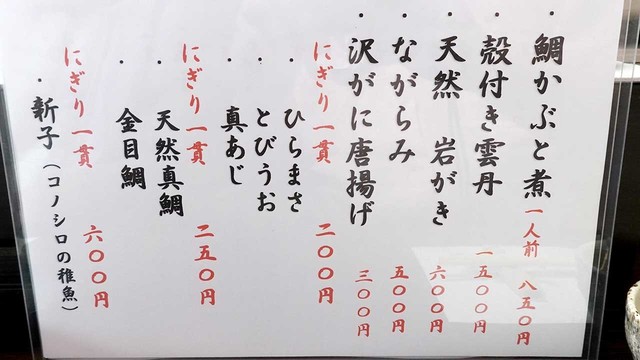 ・鯛かぶと煮 一人前 八五〇円
・殻付き雲丹 一五〇〇円
・天然 岩がき 六〇〇円
・ながらみ 五〇〇円
・沢がに唐揚げ 三〇〇円
にぎり一貫 二〇〇円
・ひらまさ
・とびうお
・真あじ
にぎり一貫 二五〇円
・天然真鯛
・金目鯛
にぎり一貫 六〇〇円
・新子（コノシロの稚魚）